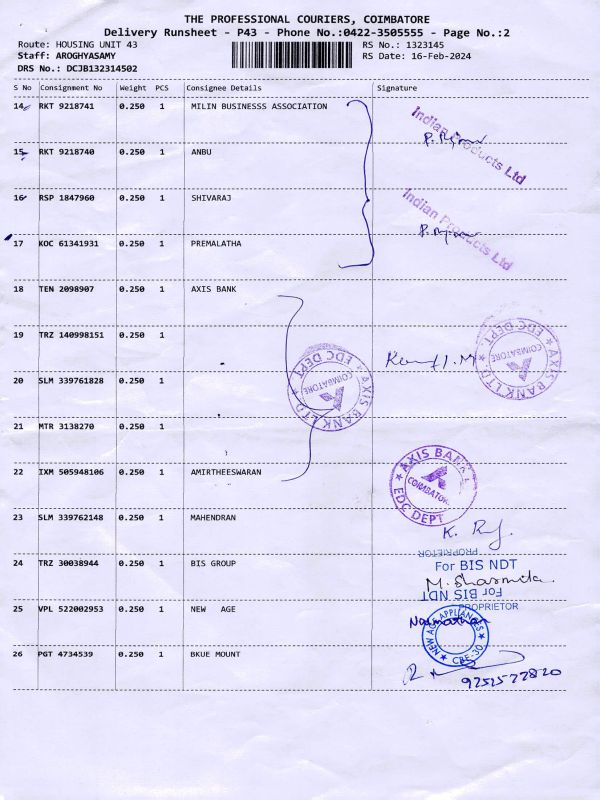 THE PROFESSIONAL COURIERS, COIMBATORE
Delivery Runsheet - P43 - Phone No.:0422-3505555 - Page No.:2
Route: HOUSING UNIT 43 RS No.: 1323145
Staff: AROGHYASAMY RS Date: 16-Feb-2024
DRS No.: DCJB132314502
S No Consignment No Weight PCS Consignee Details Signature
14 RKT 9218741 0.250 1 MILIN BUSINESSS ASSOCIATION
Indian Products Ltd
15 RKT 9218740 0.250 1 ANBU
16 RSP 1847960 0.250 1 SHIVARAJ
Indian Products Ltd
17 KOC 61341931 0.250 1 PREMALATHA
18 TEN 2098907 0.250 1 AXIS BANK
19 TRZ 140998151 0.250 1
AXIS BANK LTD. EDC DEPT COIMBATORE
20 SLM 339761828 0.250 1
AXIS BANK LTD. EDC DEPT COIMBATORE
21 MTR 3138270 0.250 1
22 IXM 505948106 0.250 1 AMIRTHEESWARAN
AXIS BANK EDC DEPT COIMBATORE
23 SLM 339762148 0.250 1 MAHENDRAN
PROPRIETOR
24 TRZ 30038944 0.250 1 BIS GROUP
For BIS NDT
M. Sharmila
For BIS NDT
PROPRIETOR
25 VPL 522002953 0.250 1 NEW AGE
NEW AGE APPLIANCES CBE-30
26 PGT 4734539 0.250 1 BKUE MOUNT